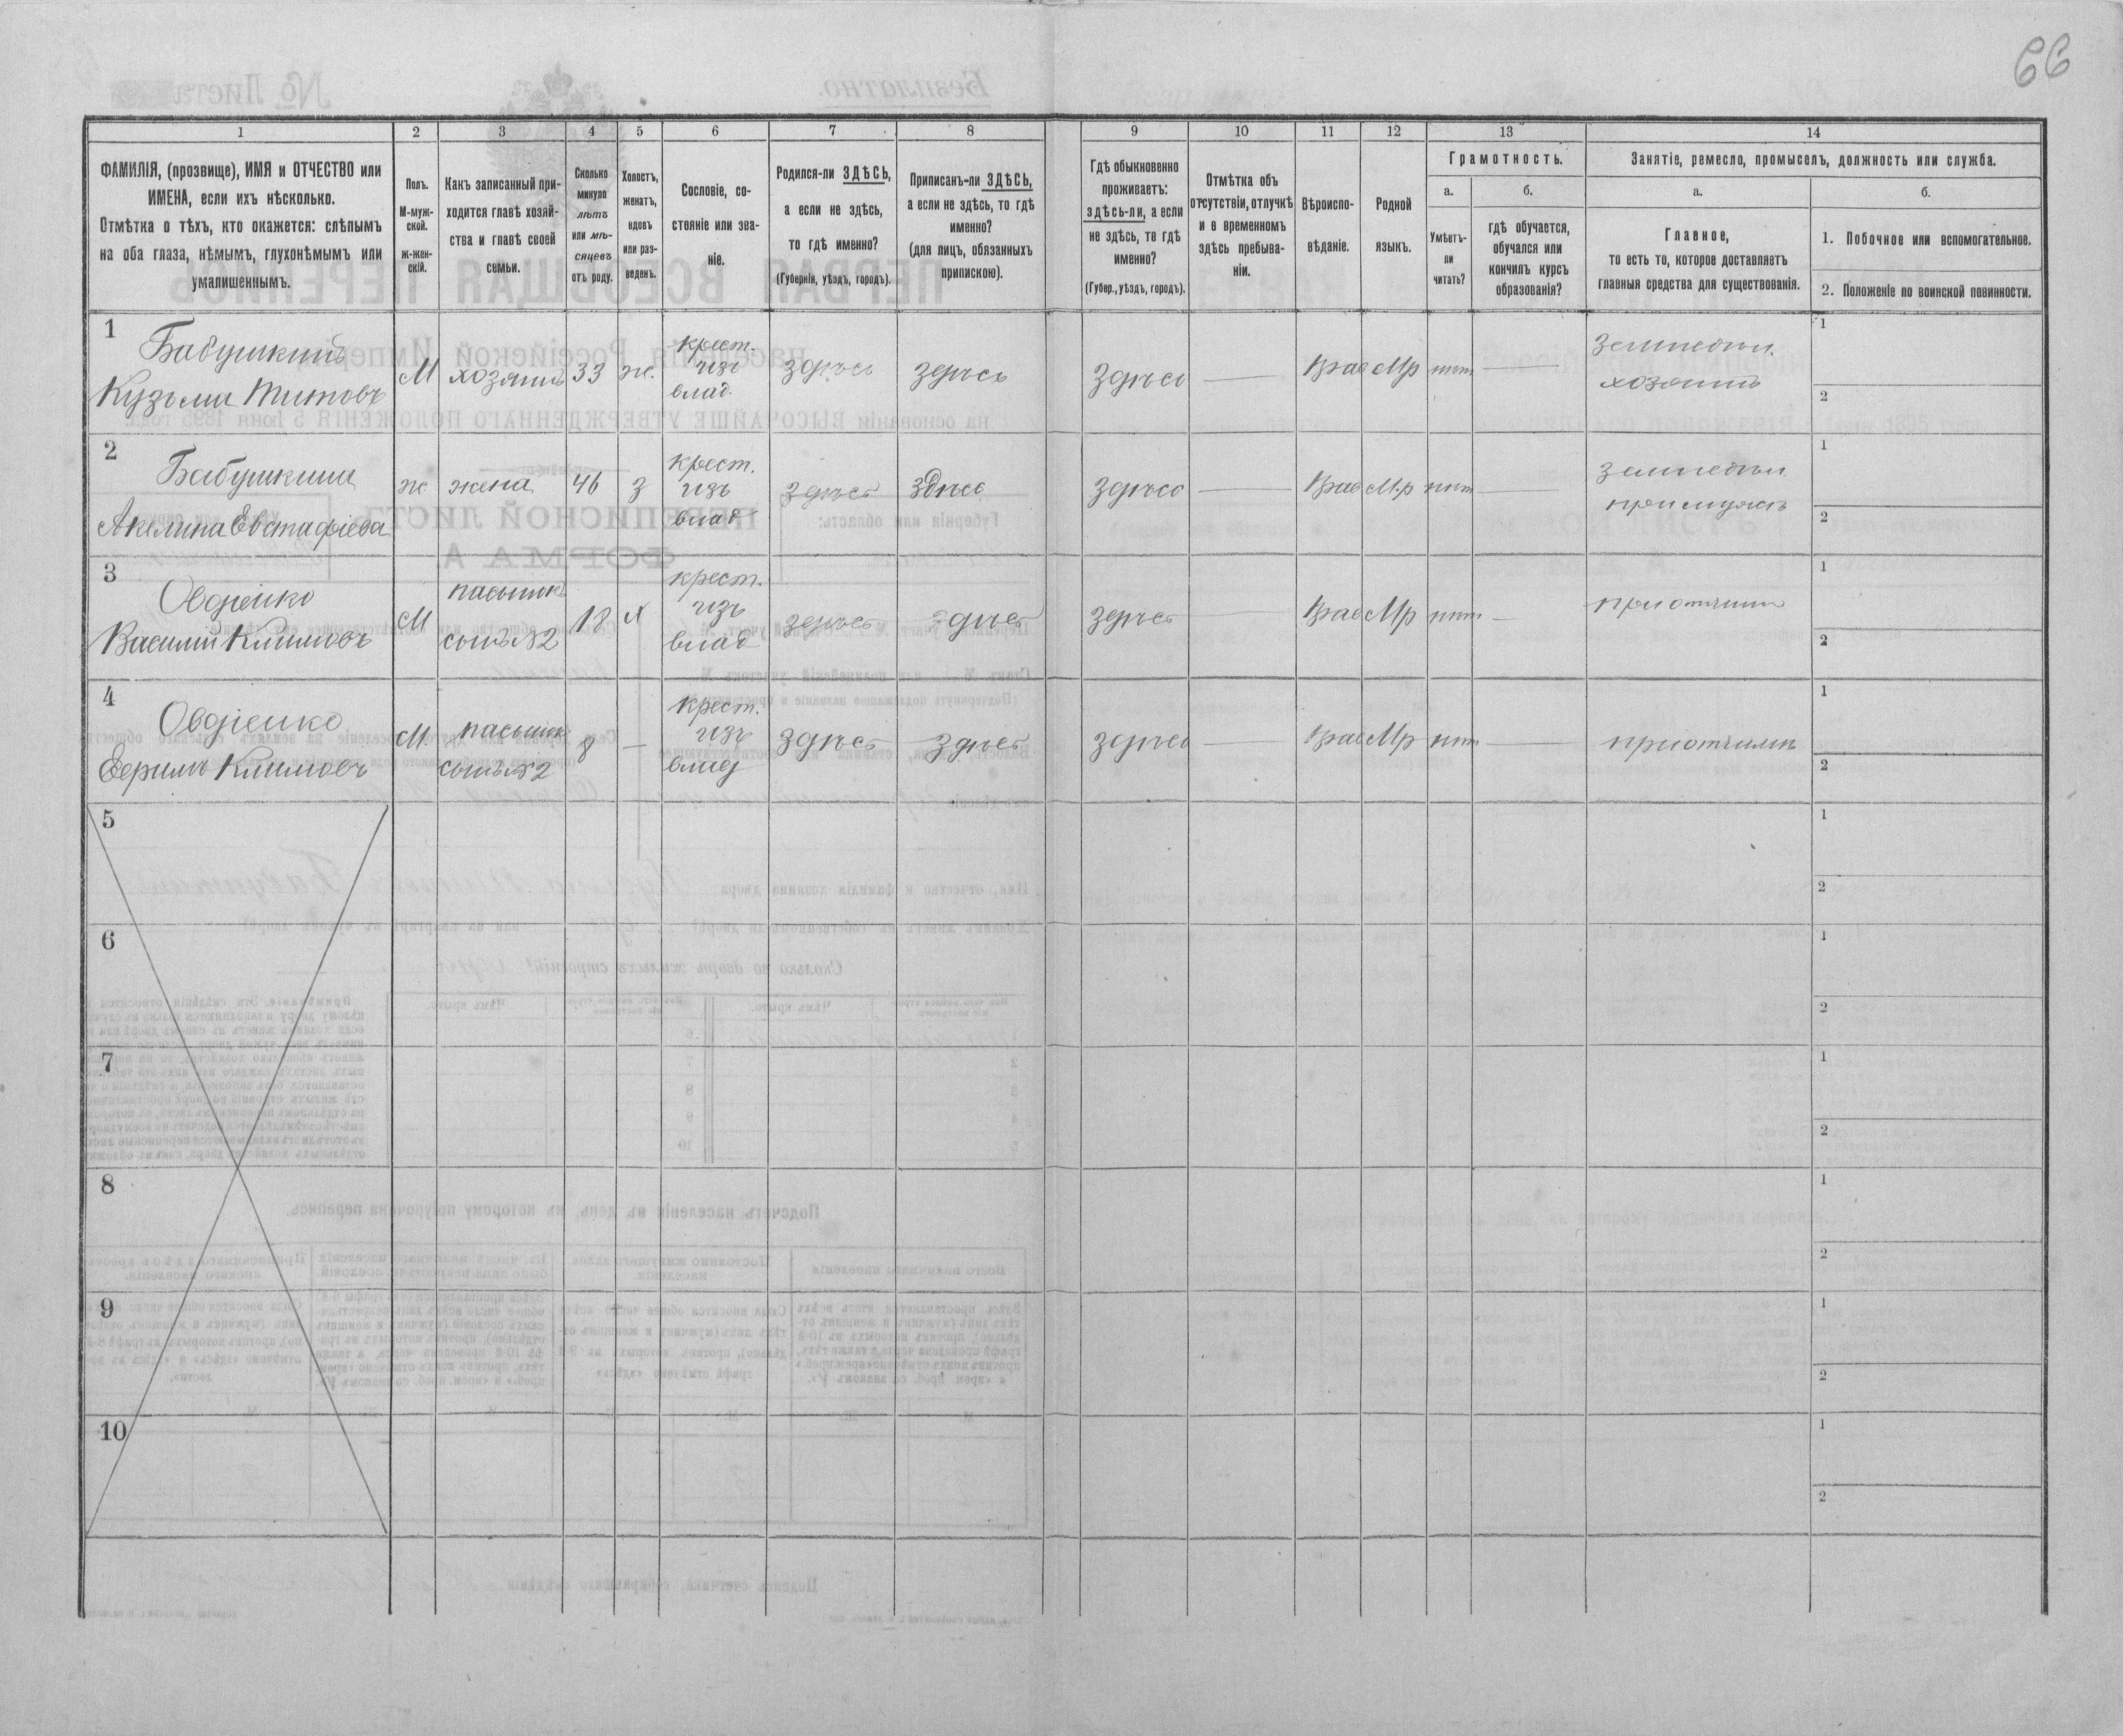 66
1 2 3 4 5 6 7 8 9 10 11 12 13 14
ФАМИЛІЯ, (прозвище), ИМЯ и ОТЧЕСТВО или
ИМЕНА, если ихъ нѣсколько.
Отмѣтка о тѣхъ, кто окажется: слѣпымъ
на оба глаза, нѣмымъ, глухонѣмымъ или
умалишеннымъ.
Полъ.
М-муж-
ской.
ж-жен-
скій.
Какъ записанный при-
ходится главѣ хозяй-
ства и главѣ своей
семьи.
Сколько
минуло
лѣтъ
или мѣ-
сяцевъ
отъ роду.
Холостъ,
женатъ,
вдовъ
или раз-
веденъ.
Сословіе, со-
стояніе или зва-
ніе.
Родился-ли ЗДѢСЬ,
а если не здѣсь,
то гдѣ именно?
(Губернія, уѣздъ, городъ).
Приписанъ-ли ЗДѢСЬ,
а если не здѣсь, то гдѣ
именно?
(для лицъ, обязанныхъ
припискою).
Гдѣ обыкновенно
проживаетъ:
здѣсь-ли, а если
не здѣсь, то гдѣ
именно?
(Губер., уѣздъ, городъ).
Отмѣтка объ
отсутствіи, отлучкѣ
и о временномъ
здѣсь пребыва-
ніи.
Вѣроиспо-
вѣданіе.
Родной
языкъ.
Грамотность.
а.
Умѣетъ-
ли
читать?
б.
гдѣ обучается,
обучался или
кончилъ курсъ
образованія?
Занятіе, ремесло, промыселъ, должность или служба.
а.
Главное,
то есть то, которое доставляетъ
главныя средства для существованія.
б.
1. Побочное или вспомогательное.
2. Положеніе по воинской повинности.
1
Бабушкинъ
Кузьма Титовъ
М
хозяинъ
33
ж.
крест.
изъ
влад.
здѣсь
здѣсь
здѣсь
—
Прав
Мр
нѣт
—
землед.
хозяинъ
1
2
2
Бабушкина
Акелина Евстафіева
ж
жена
46
з
крест.
изъ
влад
здѣсь
здѣсь
здѣсь
—
Прав
М.р
нѣт
—
землед.
1
2
3
Овдіенко
Василій Климовъ
М
пасынок
сынъ №2
18
х
крест.
изъ
влад
здѣсь
здѣсь
здѣсь
—
Прав
Мр
нѣт
—
при отчимѣ
1
2
4
Овдіенко
Ефимъ Климовъ
М
пасынок
сынъ №2
8
—
крест.
изъ
влад
здѣсь
здѣсь
здѣсь
—
Прав
Мр
нѣт
—
при отчимѣ
1
2
5
1
2
6
1
2
7
1
2
8
1
2
9
1
2
10
1
2